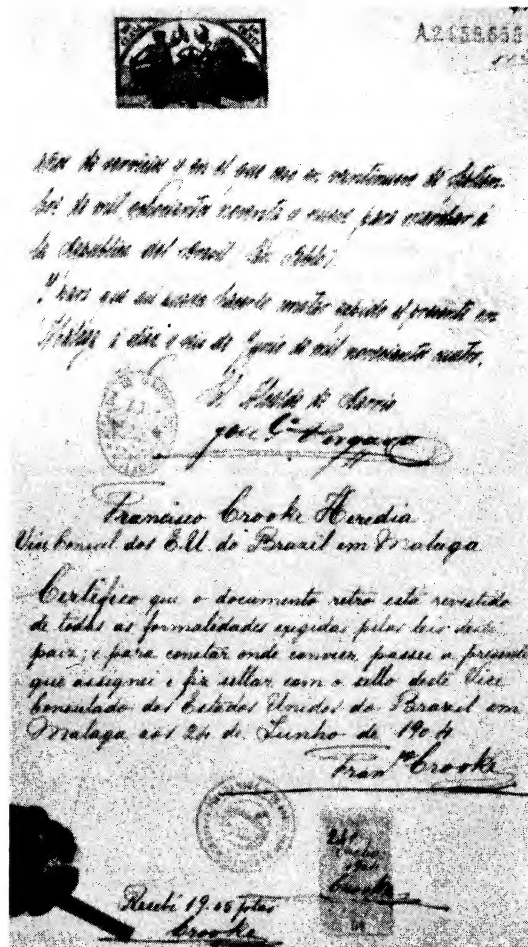 A2458.658
años de servicios y en el que ceso en veintinueve de Setiem-
bre de mil ochocientos noventa y nueve para marchar á
la Republica del Brasil
Y para que así pueda hacerlo constar expido el presente en
Malaga á diez y seis de Junio de mil novecientos cuatro.
El de Barrio
José Gª Vergara
Francisco Crooke Heredia
Vice Consul dos E.U. do Brazil em Malaga
Certifico que o documento retro está revestido
de todas as formalidades exigidas pelas leis deste
paiz, e para constar onde convier, passei a presente
que assignei e fiz sellar com o sello deste Vice
Consulado dos Estados Unidos do Brazil em
Malaga aos 24 de Junho de 1904
Franco Crooke
24
Junho
1904
Crooke
Recibi 19.05 ptas
Crooke